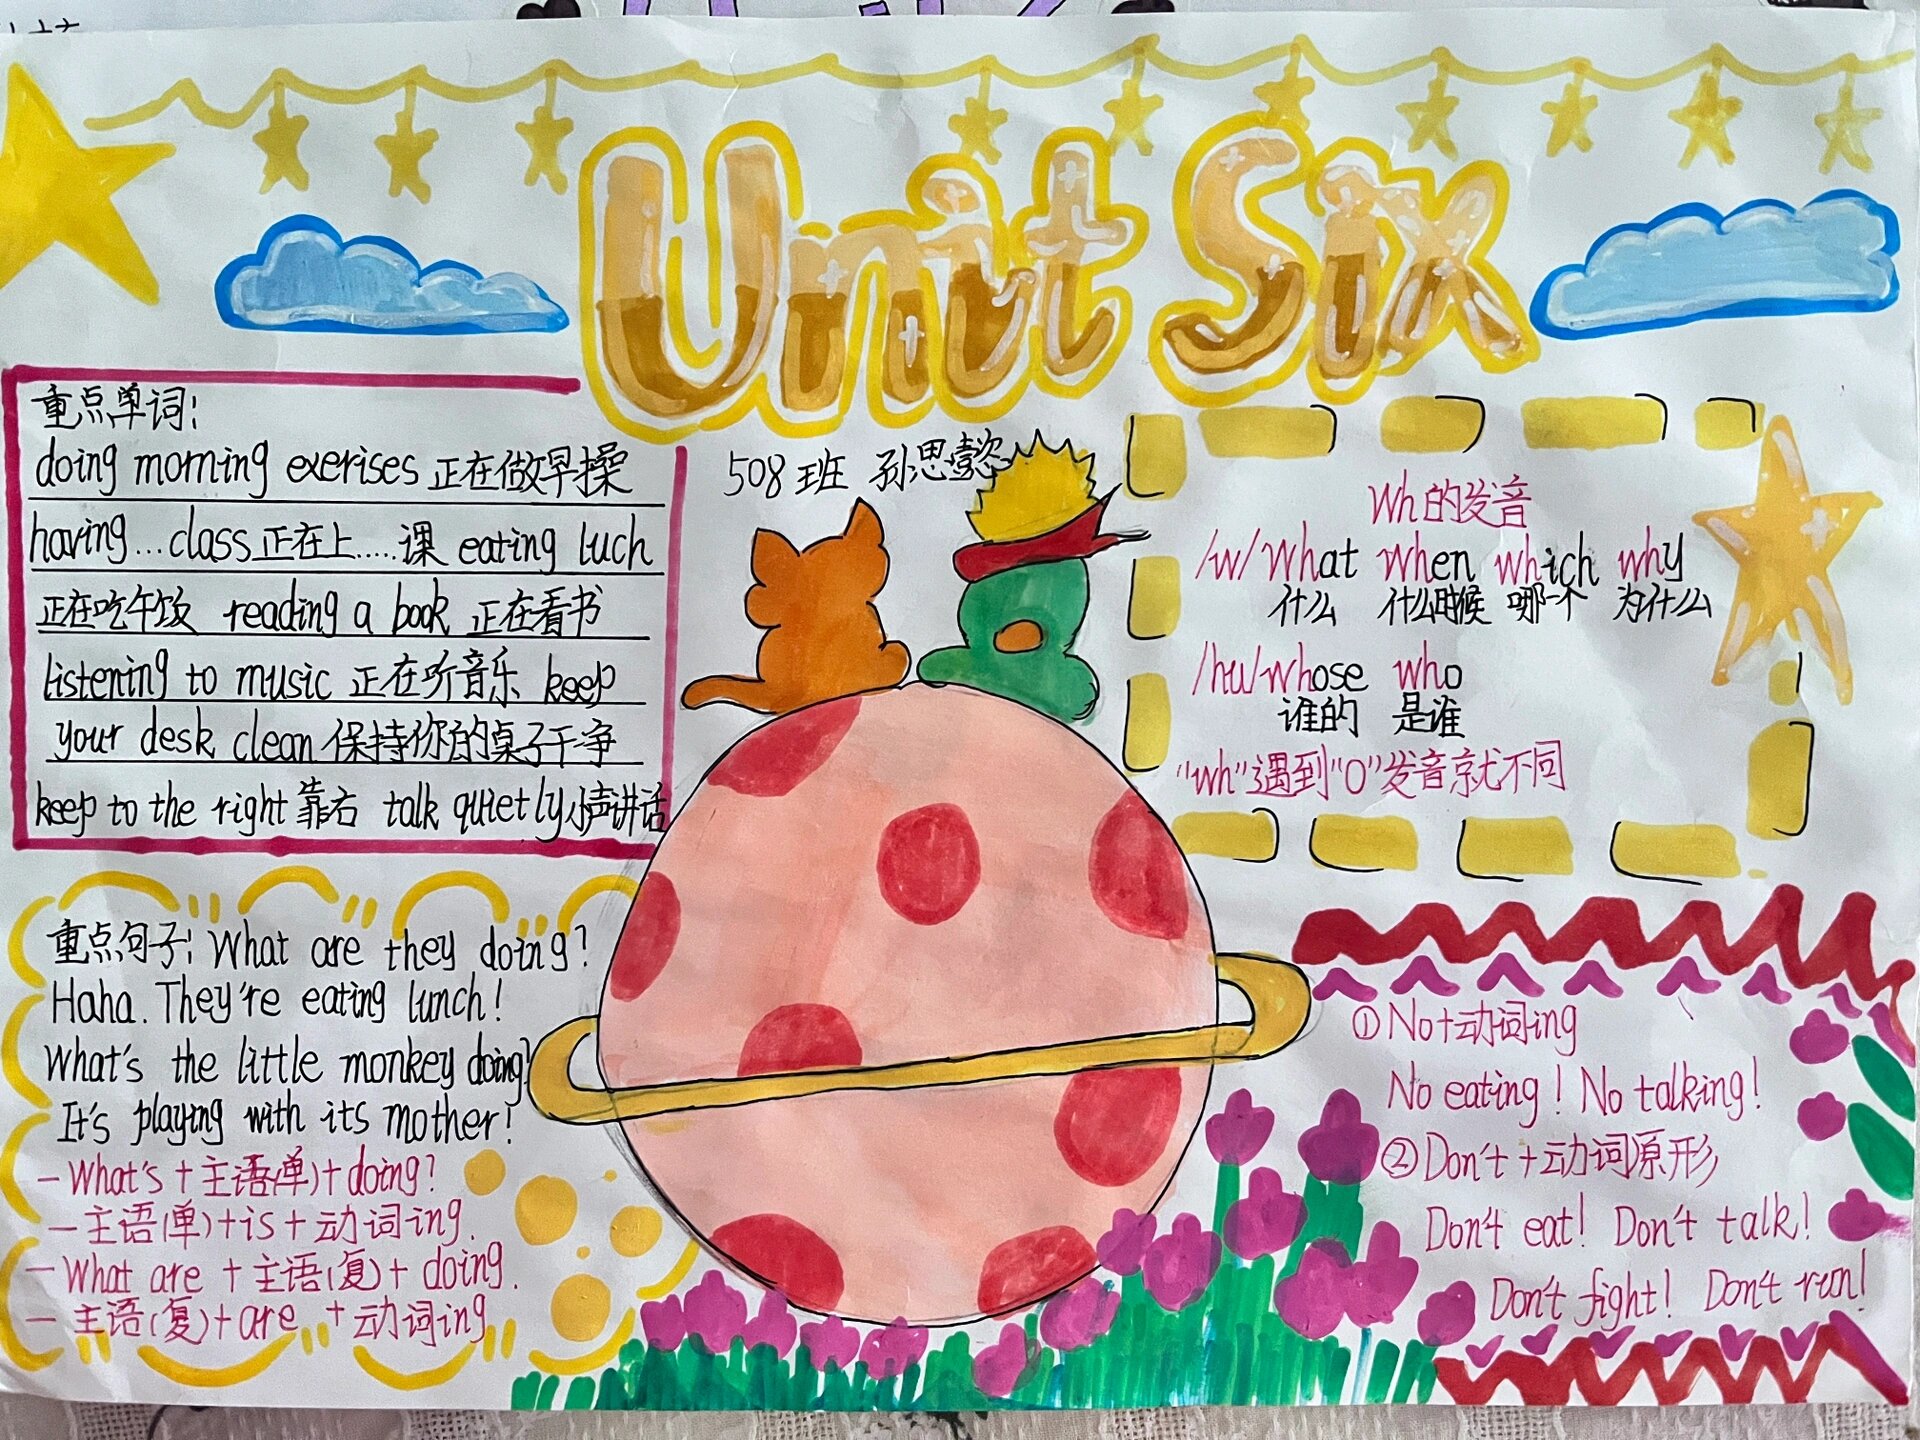 Unit Six
重点单词:
doing morning exerises 正在做早操
having...class 正在上.....课 eating luch
正在吃午饭 reading a book 正在看书
listening to music 正在听音乐 keep
your desk clean 保持你的桌子干净
keep to the right 靠右 talk quietly 小声讲话
508班 孙思懿
Wh的发音
/w/ what when which why
什么 什么时候 哪一个 为什么
/hu/ whose who
谁的 是谁
"wh"遇到"O"发音就不同
重点句子: What are they doing?
Haha. They're eating lunch!
What's the little monkey doing?
It's playing with its mother!
- What's + 主语(单) + doing?
- 主语(单)+is+动词ing.
- What are + 主语(复) + doing.
- 主语(复)+are +动词ing
①No+动词ing
No eating! No talking!
②Don't +动词原形
Don't eat! Don't talk!
Don't fight! Don't run!